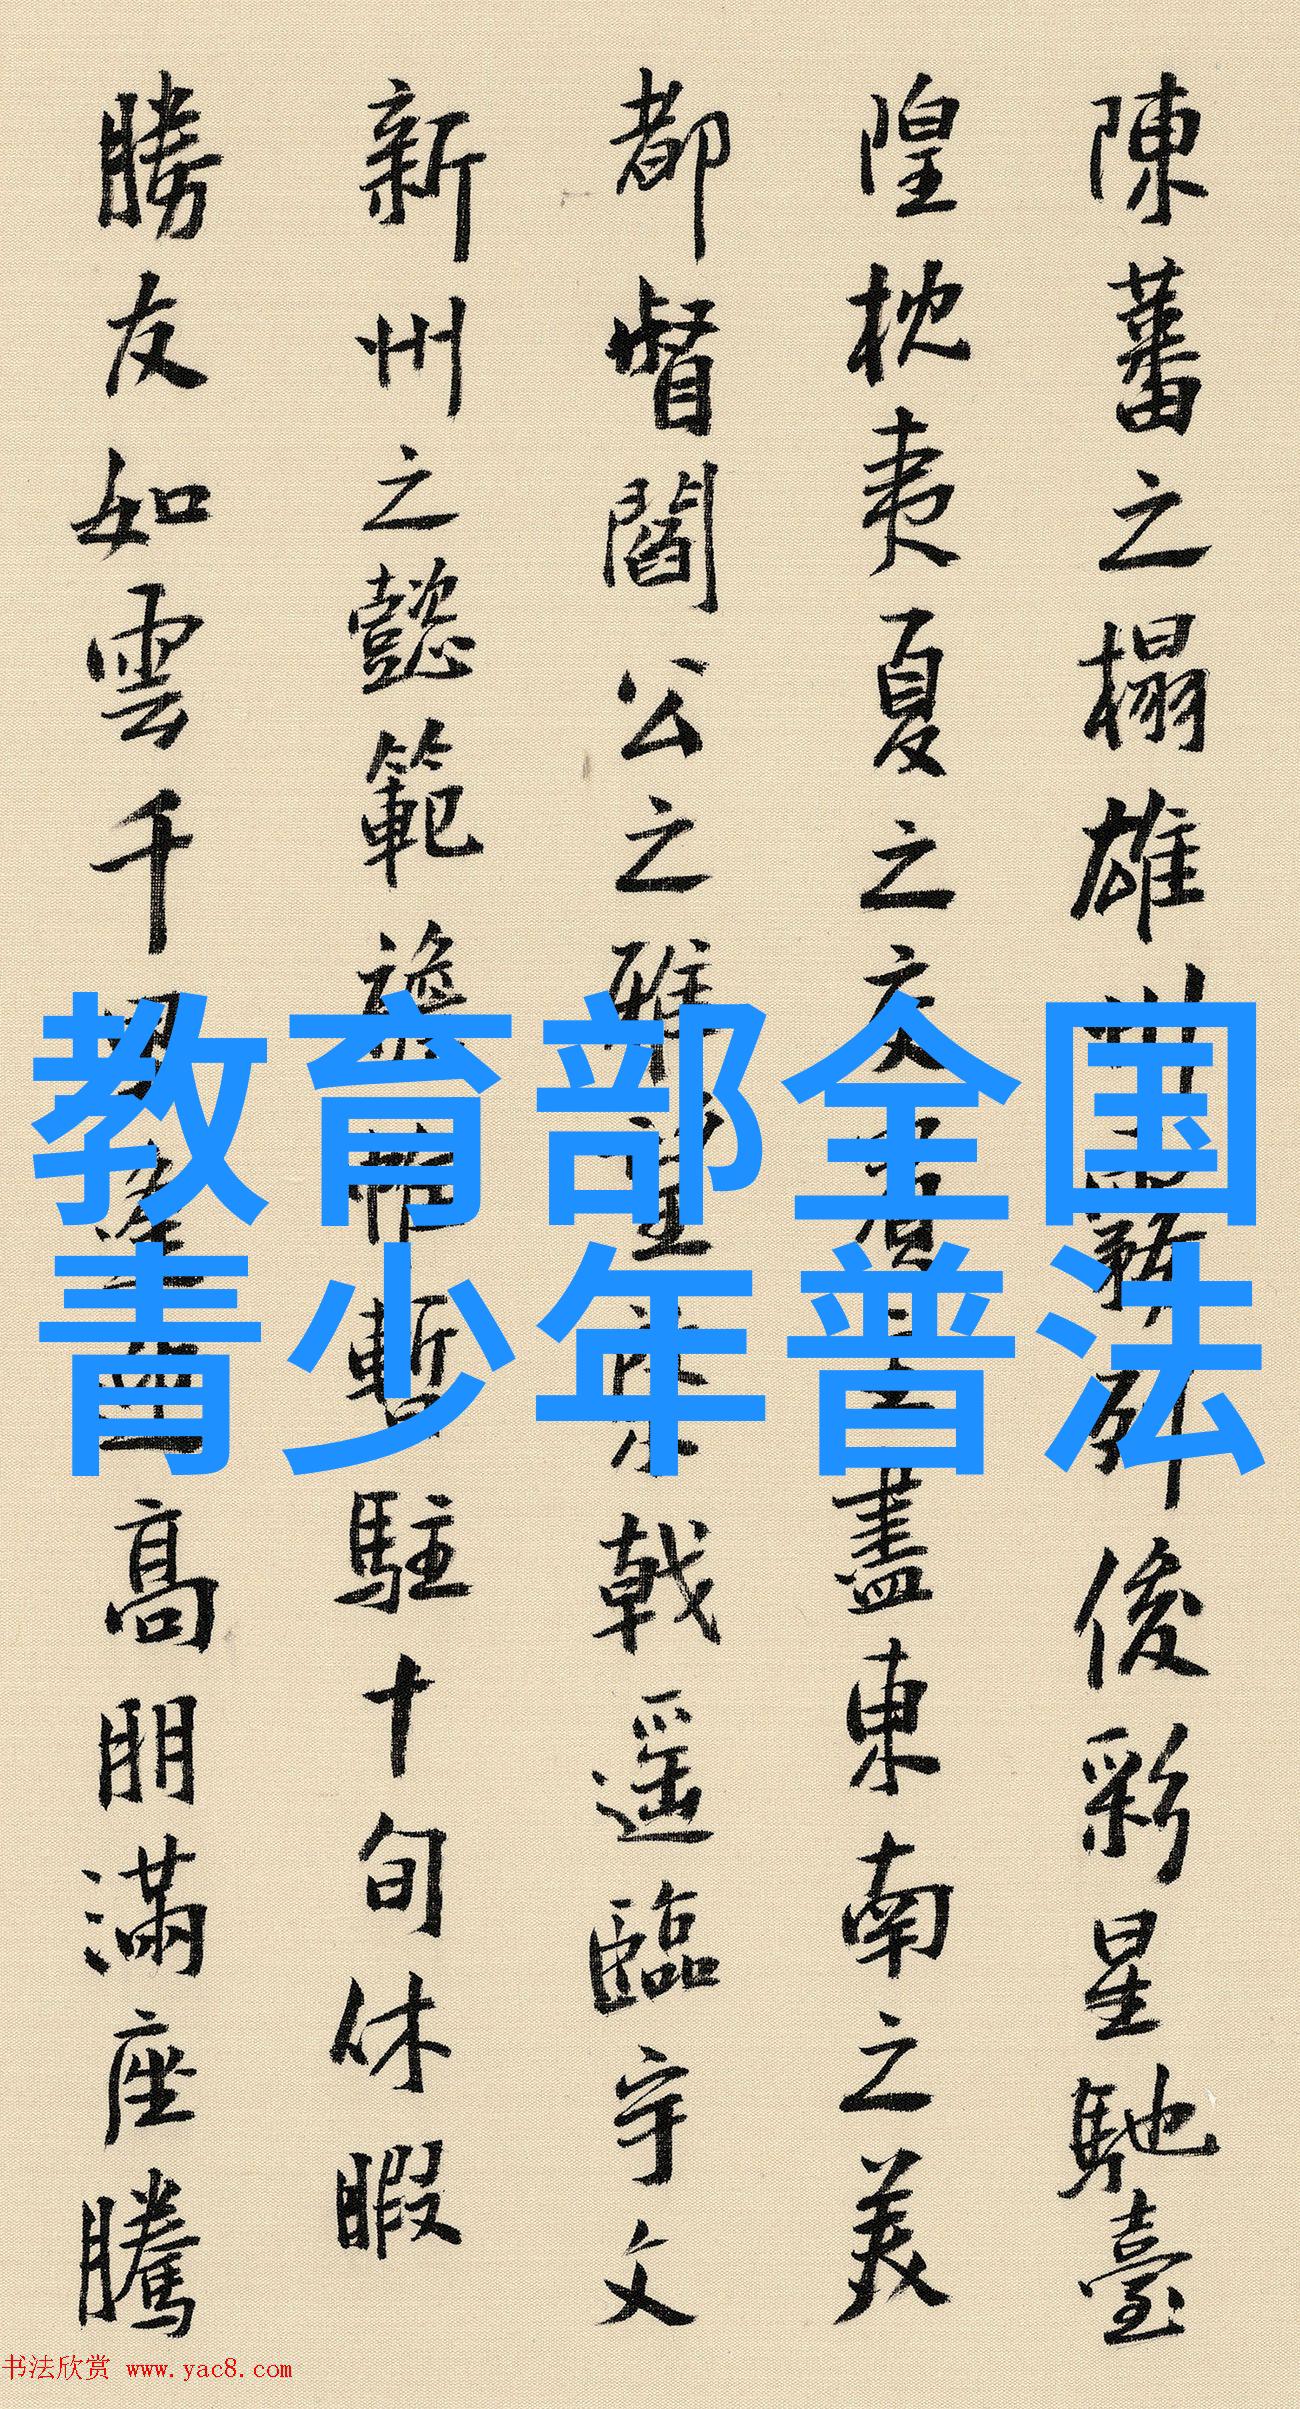 陳蕃之榻雄州霧列俊彩星馳臺
隍枕夷夏之交賓主盡東南之美
都督閻公之雅望棨戟遥臨宇文
新州之懿範襜帷暫駐十旬休暇
勝友如雲千里逢迎高朋滿座騰
教育部全国
青少年普法
书法欣赏 www.yac8.com